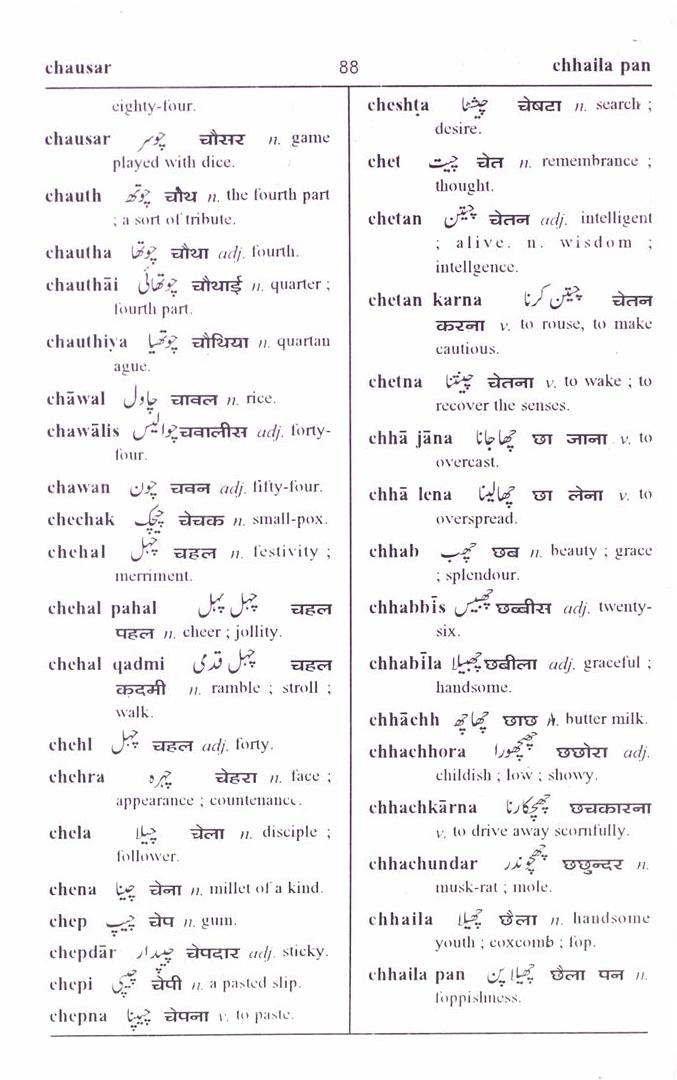 chausar 88 chhaila pan
eighty-four.
chausar چوسر चौसर n. game
played with dice.
chauth چوتھ चौथ n. the fourth part
; a sort of tribute.
chautha چوتھا चौथा adj. fourth.
chauthāi چوتھائی चौथाई n. quarter ;
fourth part.
chauthiya چوتھیا चौथिया n. quartan
ague.
chāwal چاول चावल n. rice.
chawālis چوالیس चवालीस adj. forty-
four.
chawan چون चवन adj. fifty-four.
chechak چیچک चेचक n. small-pox.
chehal چہل चहल n. festivity ;
merriment.
chehal pahal چہل پہل चहल
पहल n. cheer ; jollity.
chehal qadmi چہل قدمی चहल
क़दमी n. ramble ; stroll ;
walk.
chehl چہل चहल adj. forty.
chehra چہرہ चेहरा n. face ;
appearance ; countenance.
chela چیلا चेला n. disciple ;
follower.
chena چینا चेना n. millet of a kind.
chep چیپ चेप n. gum.
chepdār چیپدار चेपदार adj. sticky.
chepi چیپی चेपी n. a pasted slip.
chepna چیپنا चेपना v. to paste.
cheshṭa چیشٹا चेषटा n. search ;
desire.
chet چیت चेत n. remembrance ;
thought.
chetan چیتن चेतन adj. intelligent
; alive. n. wisdom ;
intellgence.
chetan karna چیتن کرنا चेतन
करना v. to rouse, to make
cautious.
chetna چیتنا चेतना v. to wake ; to
recover the senses.
chhā jāna چھا جانا छा जाना v. to
overcast.
chhā lena چھا لینا छा लेना v. to
overspread.
chhab چھب छब n. beauty ; grace
; splendour.
chhabbīs چھبیس छब्बीस adj. twenty-
six.
chhabīla چھبیلا छबीला adj. graceful ;
handsome.
chhāchh چھاچھ छाछ n. butter milk.
chhachhora چھچھورا छछोरा adj.
childish ; low ; showy.
chhachkārna چھچکارنا छचकारना
v. to drive away scornfully.
chhachundar چھچوندر छछुन्दर n.
musk-rat ; mole.
chhaila چھیلا छैला n. handsome
youth ; coxcomb ; fop.
chhaila pan چھیلا پن छैला पन n.
foppishness.